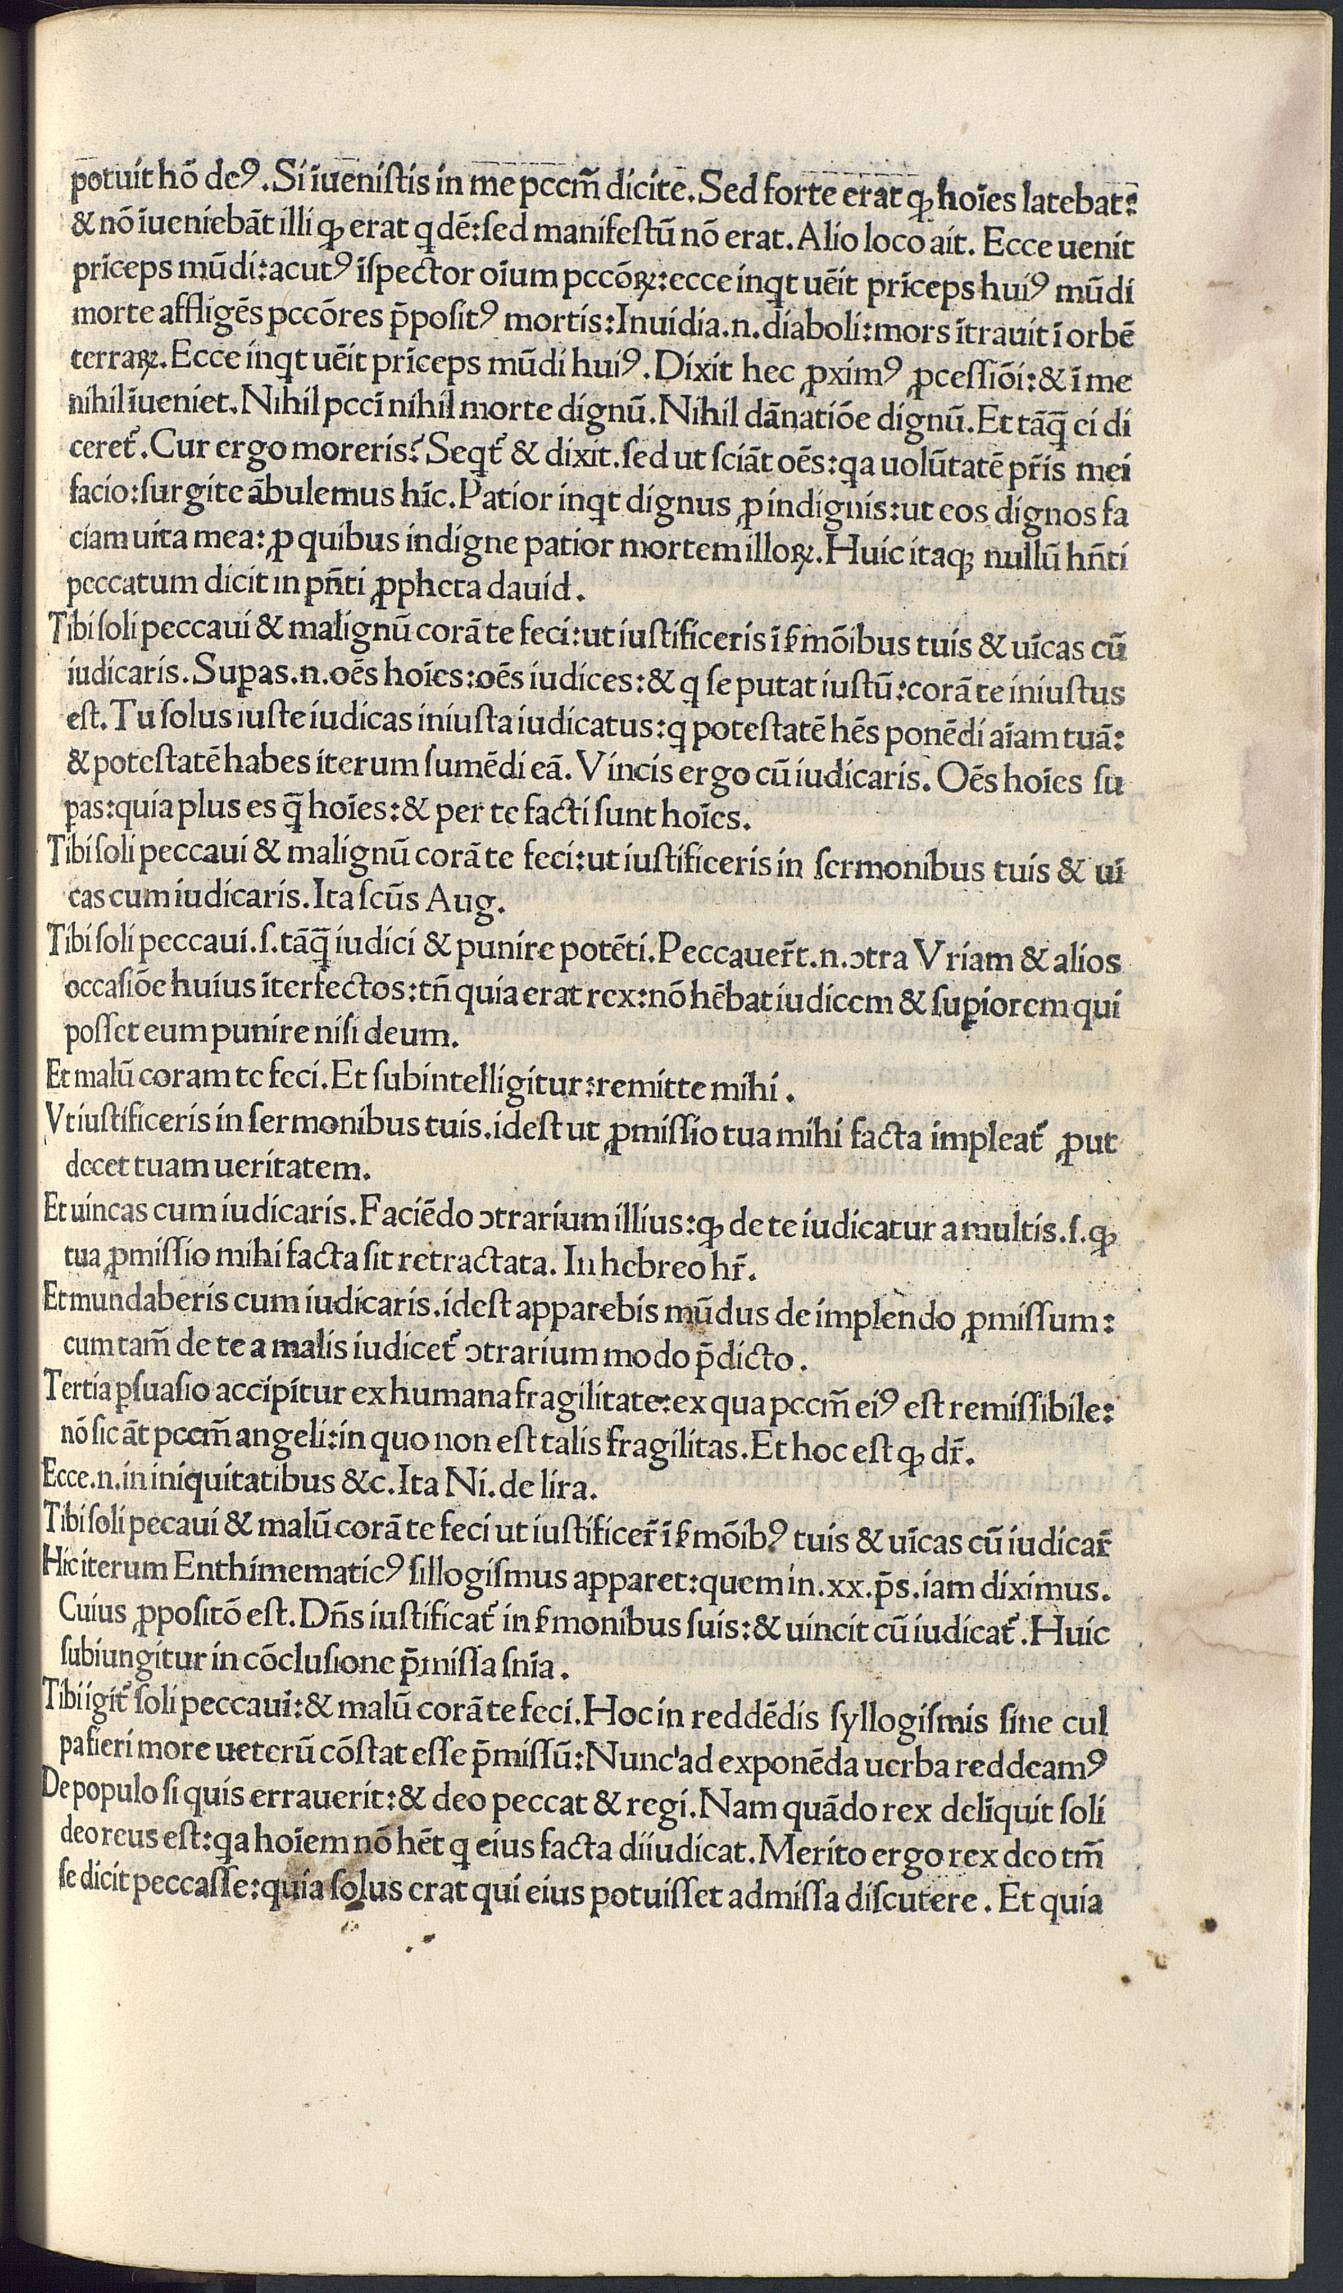 potuit hō deꝰ. Si īueniſtis in me pccm̄ dicite. Sed forte erat ꝙ hoīes latebat:
& nō īueniebāt illi ꝙ erat qdē: ſed manifeſtū nō erat. Alio loco ait. Ecce uenit
prīceps mūdi: acutꝰ īſpector oīum pccōꝝ: ecce inqt uēit prīceps huiꝰ mūdi
morte affligēs pccōres p̄poſitꝰ mortis: Inuidia .n. diaboli: mors ītrauit ī orbē
terraꝝ. Ecce inqt uēit prīceps mūdi huiꝰ. Dixit hec ꝓximꝰ ꝓceſſiōi: & ī me
nihil īueniet. Nihil pccī nihil morte dignū. Nihil dānatiōe dignū. Et tāq̄ ei di
ceret᷑. Cur ergo moreris? Seqt᷑ & dixit. ſed ut ſciāt oēs: qa uolūtatē pr̄is mei
facio: ſurgite ābulemus hīc. Patior inqt dignus ꝓ indignis: ut eos dignos fa
ciam uita mea: ꝓ quibus indigne patior mortem illoꝝ. Huic itaqꝫ nullū hn̄ti
peccatum dicit in pn̄ti ꝓpheta dauid.
Tibi ſoli peccaui & malignū corā te feci: ut iuſtificeris ī ẜmōibus tuis & uīcas cū
iudicaris. Suꝑas .n. oēs hoīes: oēs iudices: & q ſe putat iuſtū: corā te iniuſtus
eſt. Tu ſolus iuſte iudicas iniuſta iudicatus: q poteſtatē hēs ponēdi aīam tuā:
& poteſtatē habes iterum ſumēdi eā. Vincis ergo cū iudicaris. Oēs hoīes ſu
ꝑas: quia plus es q̄ hoīes: & per te facti ſunt hoīes.
Tibi ſoli peccaui & malignū corā te feci: ut iuſtificeris in ſermonibus tuis & uī
cas cum iudicaris. Ita ſcūs Aug.
Tibi ſoli peccaui .ſ. tāq̄ iudici & punire potēti. Peccauer̄t .n. ↄtra Vriam & alios
occaſiōe huius īterfectos: tn̄ quia erat rex: nō hēbat iudicem & ſuꝑiorem qui
poſſet eum punire niſi deum.
Et malū coram te feci. Et ſubintelligitur: remitte mihi.
Vt iuſtificeris in ſermonibus tuis. ideſt ut ꝓmiſſio tua mihi facta impleat᷑ ꝓut
decet tuam ueritatem.
Et uincas cum iudicaris. Faciēdo ↄtrarium illius: ꝙ de te iudicatur a multis .ſ. ꝙ
tua ꝓmiſſio mihi facta ſit retractata. In hebreo hr̄.
Et mundaberis cum iudicaris. ideſt apparebis mūdus de implendo ꝓmiſſum:
cum tam̄ de te a malis iudicet᷑ ↄtrarium modo p̄dicto.
Tertia ꝑſuaſio accipitur ex humana fragilitate: ex qua pccm̄ eiꝰ eſt remiſſibile:
nō ſic āt pccm̄ angeli: in quo non eſt talis fragilitas. Et hoc eſt ꝙ dr̄.
Ecce .n. in iniquitatibus &c. Ita Ni. de lira.
Tibi ſoli pecaui & malū corā te feci ut iuſtificer̄ ī ẜmōibꝰ tuis & uīcas cū iudicar̄
Hic iterum Enthimematicꝰ ſillogiſmus apparet: quem in .xx. p̄s. iam diximus.
Cuius ꝓpoſitō eſt. Dn̄s iuſtificat᷑ in ẜmonibus ſuis: & uincit cū iudicat᷑. Huic
ſubiungitur in cōcluſione p̄miſſa ſnīa.
Tibi igit᷑ ſoli peccaui: & malū corā te feci. Hoc in reddēdis ſyllogiſmis ſine cul
pa fieri more ueterū cōſtat eſſe p̄miſſū: Nunc ad exponēda uerba reddeamꝰ
De populo ſi quis errauerit: & deo peccat & regi. Nam quādo rex delīquit ſoli
deo reus eſt: qa hoīem nō hēt q eius facta diiudicat. Merito ergo rex deo tm̄
ſe dicit peccaſſe: quia ſolus erat qui eius potuiſſet admiſſa diſcutere. Et quia